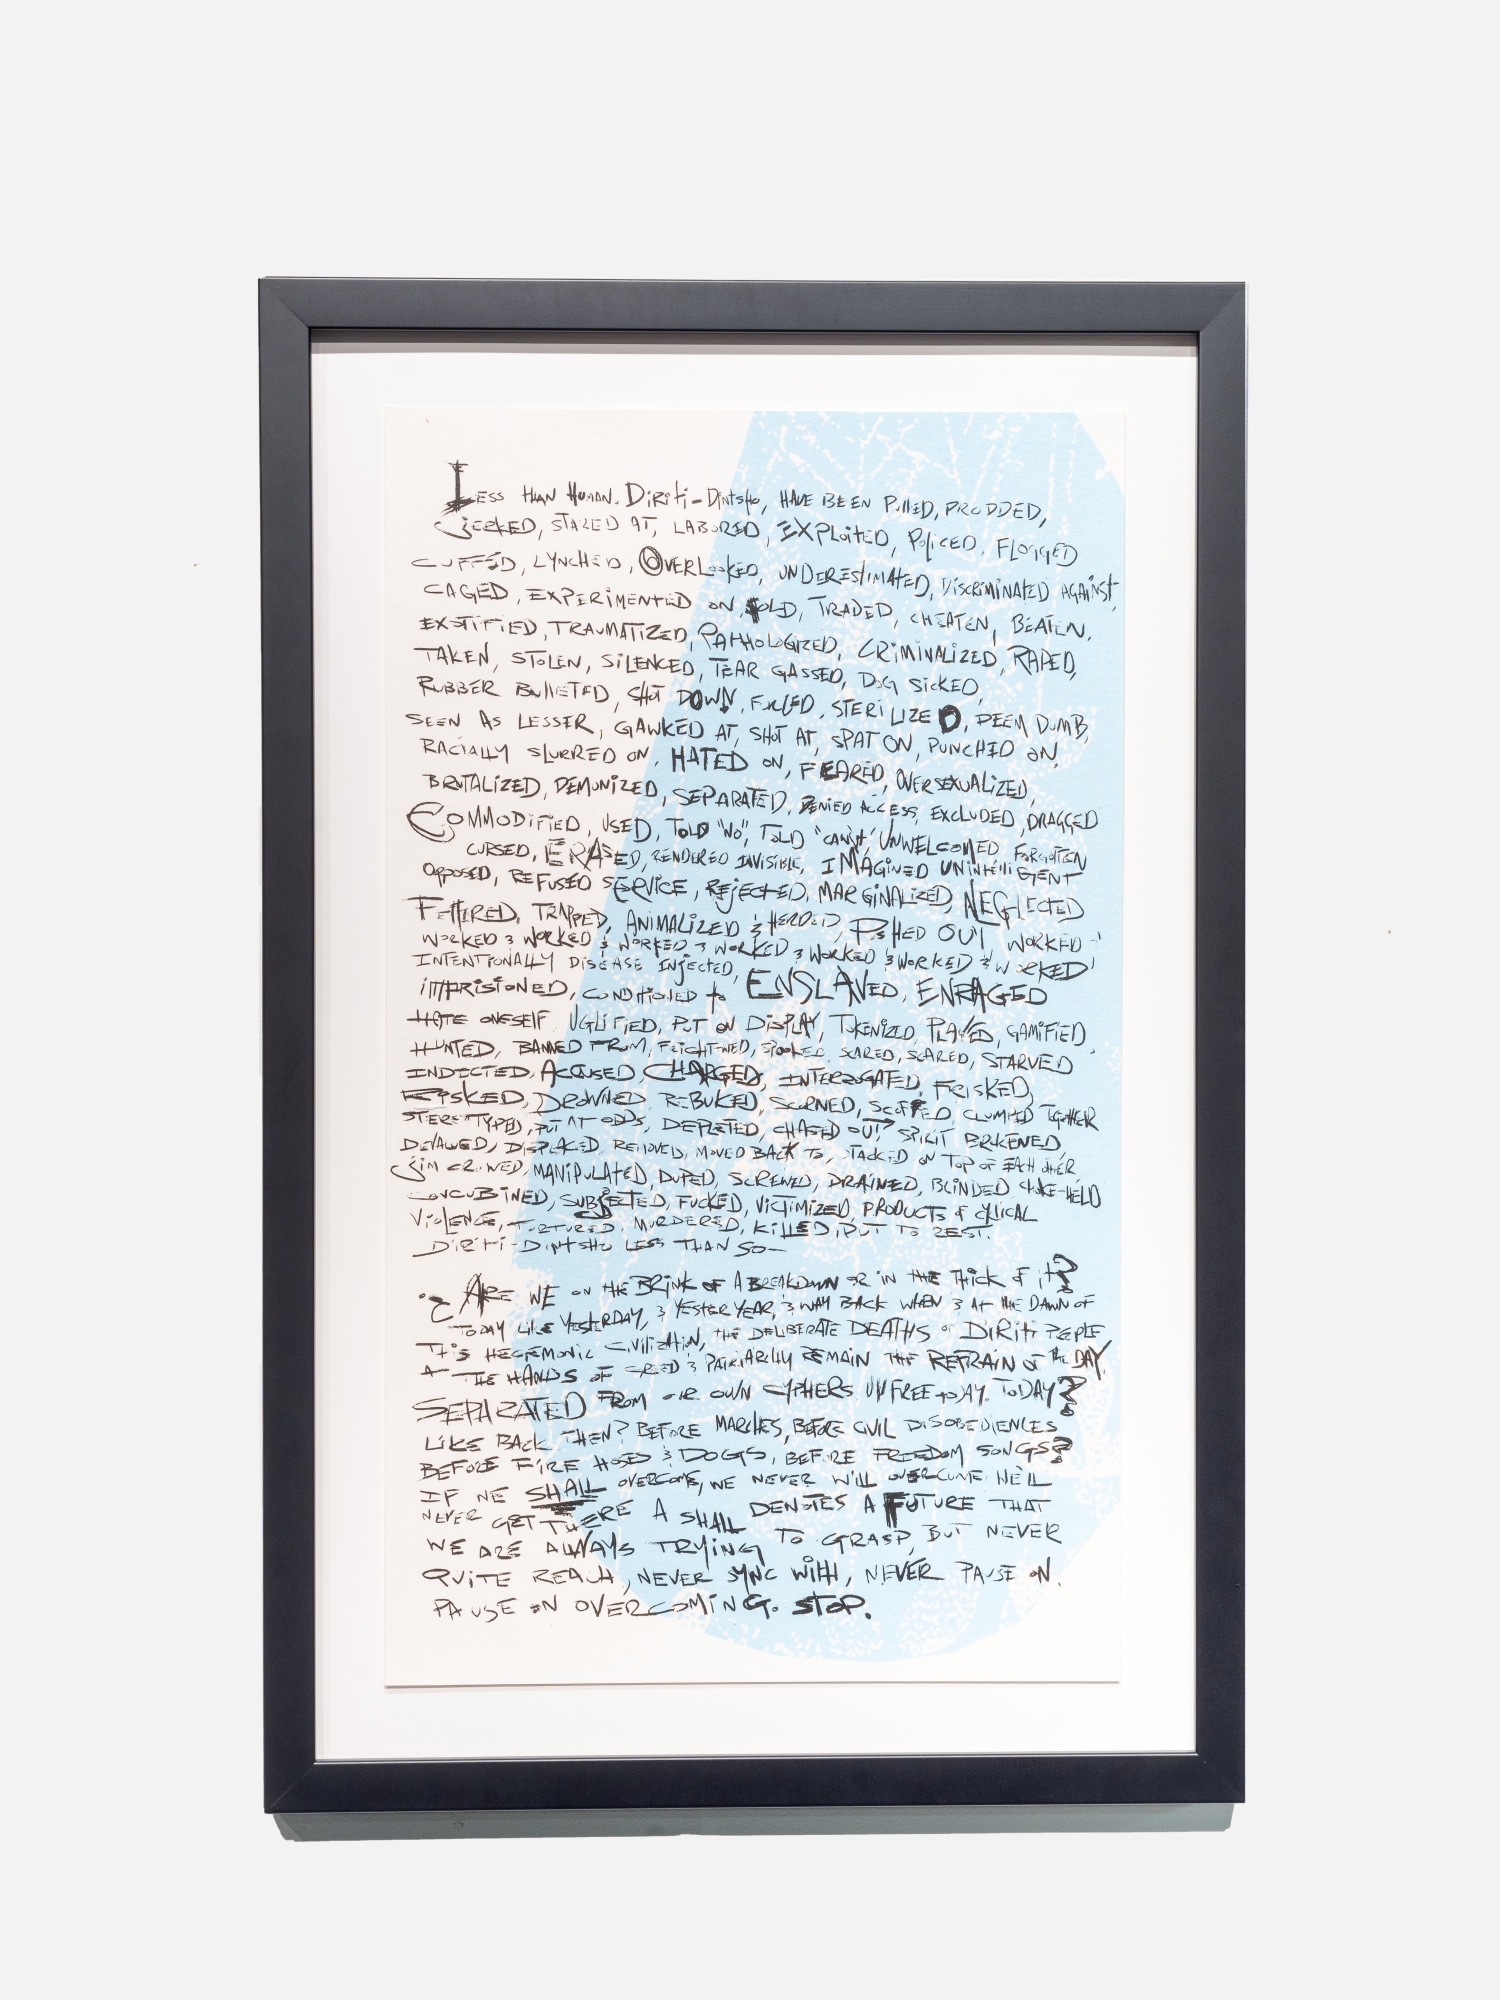 Less than Human. Diriti-Dintsho, HAVE BEEN Pulled, PRODDED,
Jerked, STARED AT, LABORED, EXPLOITED, Policed, FLOGGED
CUFFED, LYNCHED, OVERLOOKED, UNDERESTIMATED, DISCRIMINATED AGAINST,
CAGED, EXPERIMENTED ON, SOLD, TRADED, CHEATEN, BEATEN,
TRAUMATIZED, PATHOLOGIZED, CRIMINALIZED, RAPED,
TAKEN, STOLEN, SILENCED, TEAR GASSED, DOG SICKED,
RUBBER BULLETED, SHOT DOWN, STERILIZED, DEEM DUMB,
SEEN AS LESSER, GAWKED AT, SHOT AT, SPAT ON, PUNCHED ON,
RACIALLY SLURRED ON, HATED ON, FEARED, OVERSEXUALIZED,
BRUTALIZED, DEMONIZED, SEPARATED, DENIED ACCESS, EXCLUDED, DRAGGED
COMMODIFIED, USED, TOLD "NO", TOLD "can't", UNWELCOMED FORGOTTEN
CURSED, ERASED, RENDERED INVISIBLE, IMAGINED UNINTELLIGENT
OPPOSED, REFUSED SERVICE, REJECTED, MARGINALIZED, NEGLECTED
FETTERED, TRAPPED, ANIMALIZED & HERDED, PUSHED OUT, WORKED &
WORKED & WORKED & WORKED & WORKED & WORKED & WORKED & WORKED
INTENTIONALLY DISEASE INJECTED,
IMPRISIONED, CONDITIONED to ENSLAVED, ENRAGED
HATE ONESELF, UGLIFIED, PUT ON DISPLAY, TOKENIZED, PLAYED, GAMIFIED,
HUNTED, BANNED FROM, FRIGHTNED, SPOOKED, SCARED, SCARED, STARVED
INDICTED, ACCUSED, CHARGED, INTERROGATED, FRISKED,
RISKED, DROWNED REBUKED, SCORNED, SCOFFED, CLUMPED TOGETHER
STEREOTYPED, PUT AT ODDS, DEPLETED, CHASED OUT, SPIRIT BROKENED,
DEVALUED, DISPLACED, REMOVED, MOVED BACK TO, STACKED ON TOP OF EACH OTHER
JIM CROWED, MANIPULATED, DUPED, SCREWED, DRAINED, BLINDED CHOKE-HELD
CONCUBINED, SUBJECTED, FUCKED, VICTIMIZED, PRODUCTS of CYLICAL
VIOLENCE, TORTURED, MURDERED, KILLED, PUT TO REST.
DIRITI-DINTSHO LESS THAN SO—
¿ ARE WE ON THE BRINK OF A BREAKDOWN OR IN THE THICK of it?
TODAY LIKE YESTERDAY, & YESTER YEAR, & WAY BACK WHEN & AT THE DAWN OF
THIS HEGEMONIC CIVILIZATION, THE DELIBERATE DEATHS of DIRITI PEOPLE
AT THE HANDS OF GREED & PATRIARCHY REMAIN THE REFRAIN OF THE DAY.
SEPARATED FROM OUR OWN CYPHERS UNFREE TODAY. TODAY?
LIKE BACK THEN? BEFORE MARCHES, BEFORE CIVIL DISOBEDIENCES
BEFORE FIRE HOSED & DOGGS, BEFORE FREEDOM SONGS?
IF WE SHALL OVERCOME, WE NEVER WILL OVERCOME. WE'LL
NEVER GET THERE A SHALL DENOTES A FUTURE THAT
WE ARE ALWAYS TRYING TO GRASP, BUT NEVER
QUITE REACH, NEVER SYNC WITH, NEVER PAUSE ON.
PAUSE ON OVERCOMING. STOP.